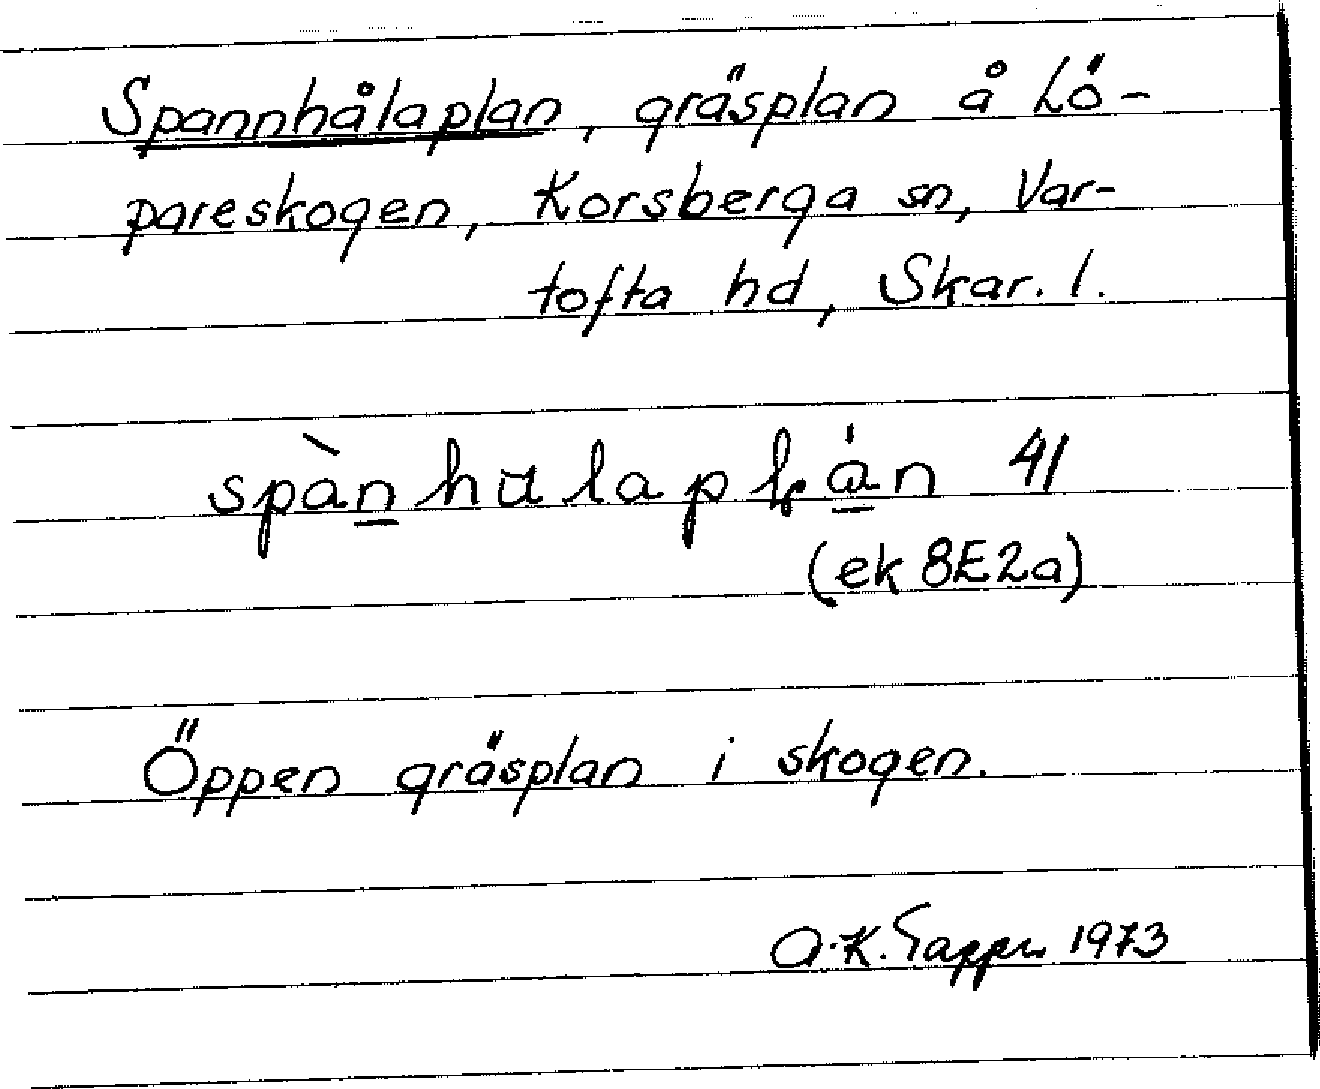 Spannhålaplan, gräsplan å Lö-
pareskogen, Korsberga sn, Var-
tofta hd, Skar. l.
spàn hu la p lán 41
(ek 8E2a)
Öppen gräsplan i skogen.
A.K. 1973